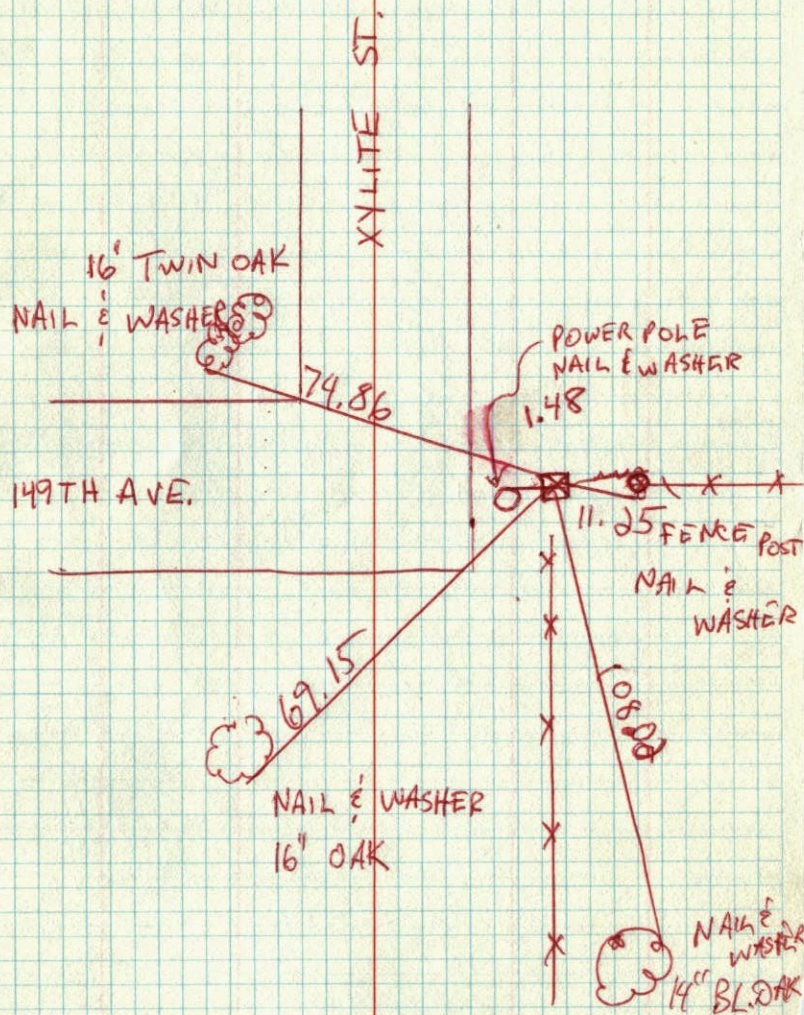 XYLITE ST.
16" TWIN OAK
NAIL & WASHER
POWER POLE
NAIL & WASHER
1.48
74.86
149TH AVE.
11.25 FENCE POST
NAIL &
WASHER
69.15
NAIL & WASHER
16" OAK
NAIL &
WASHER
14" BL. OAK